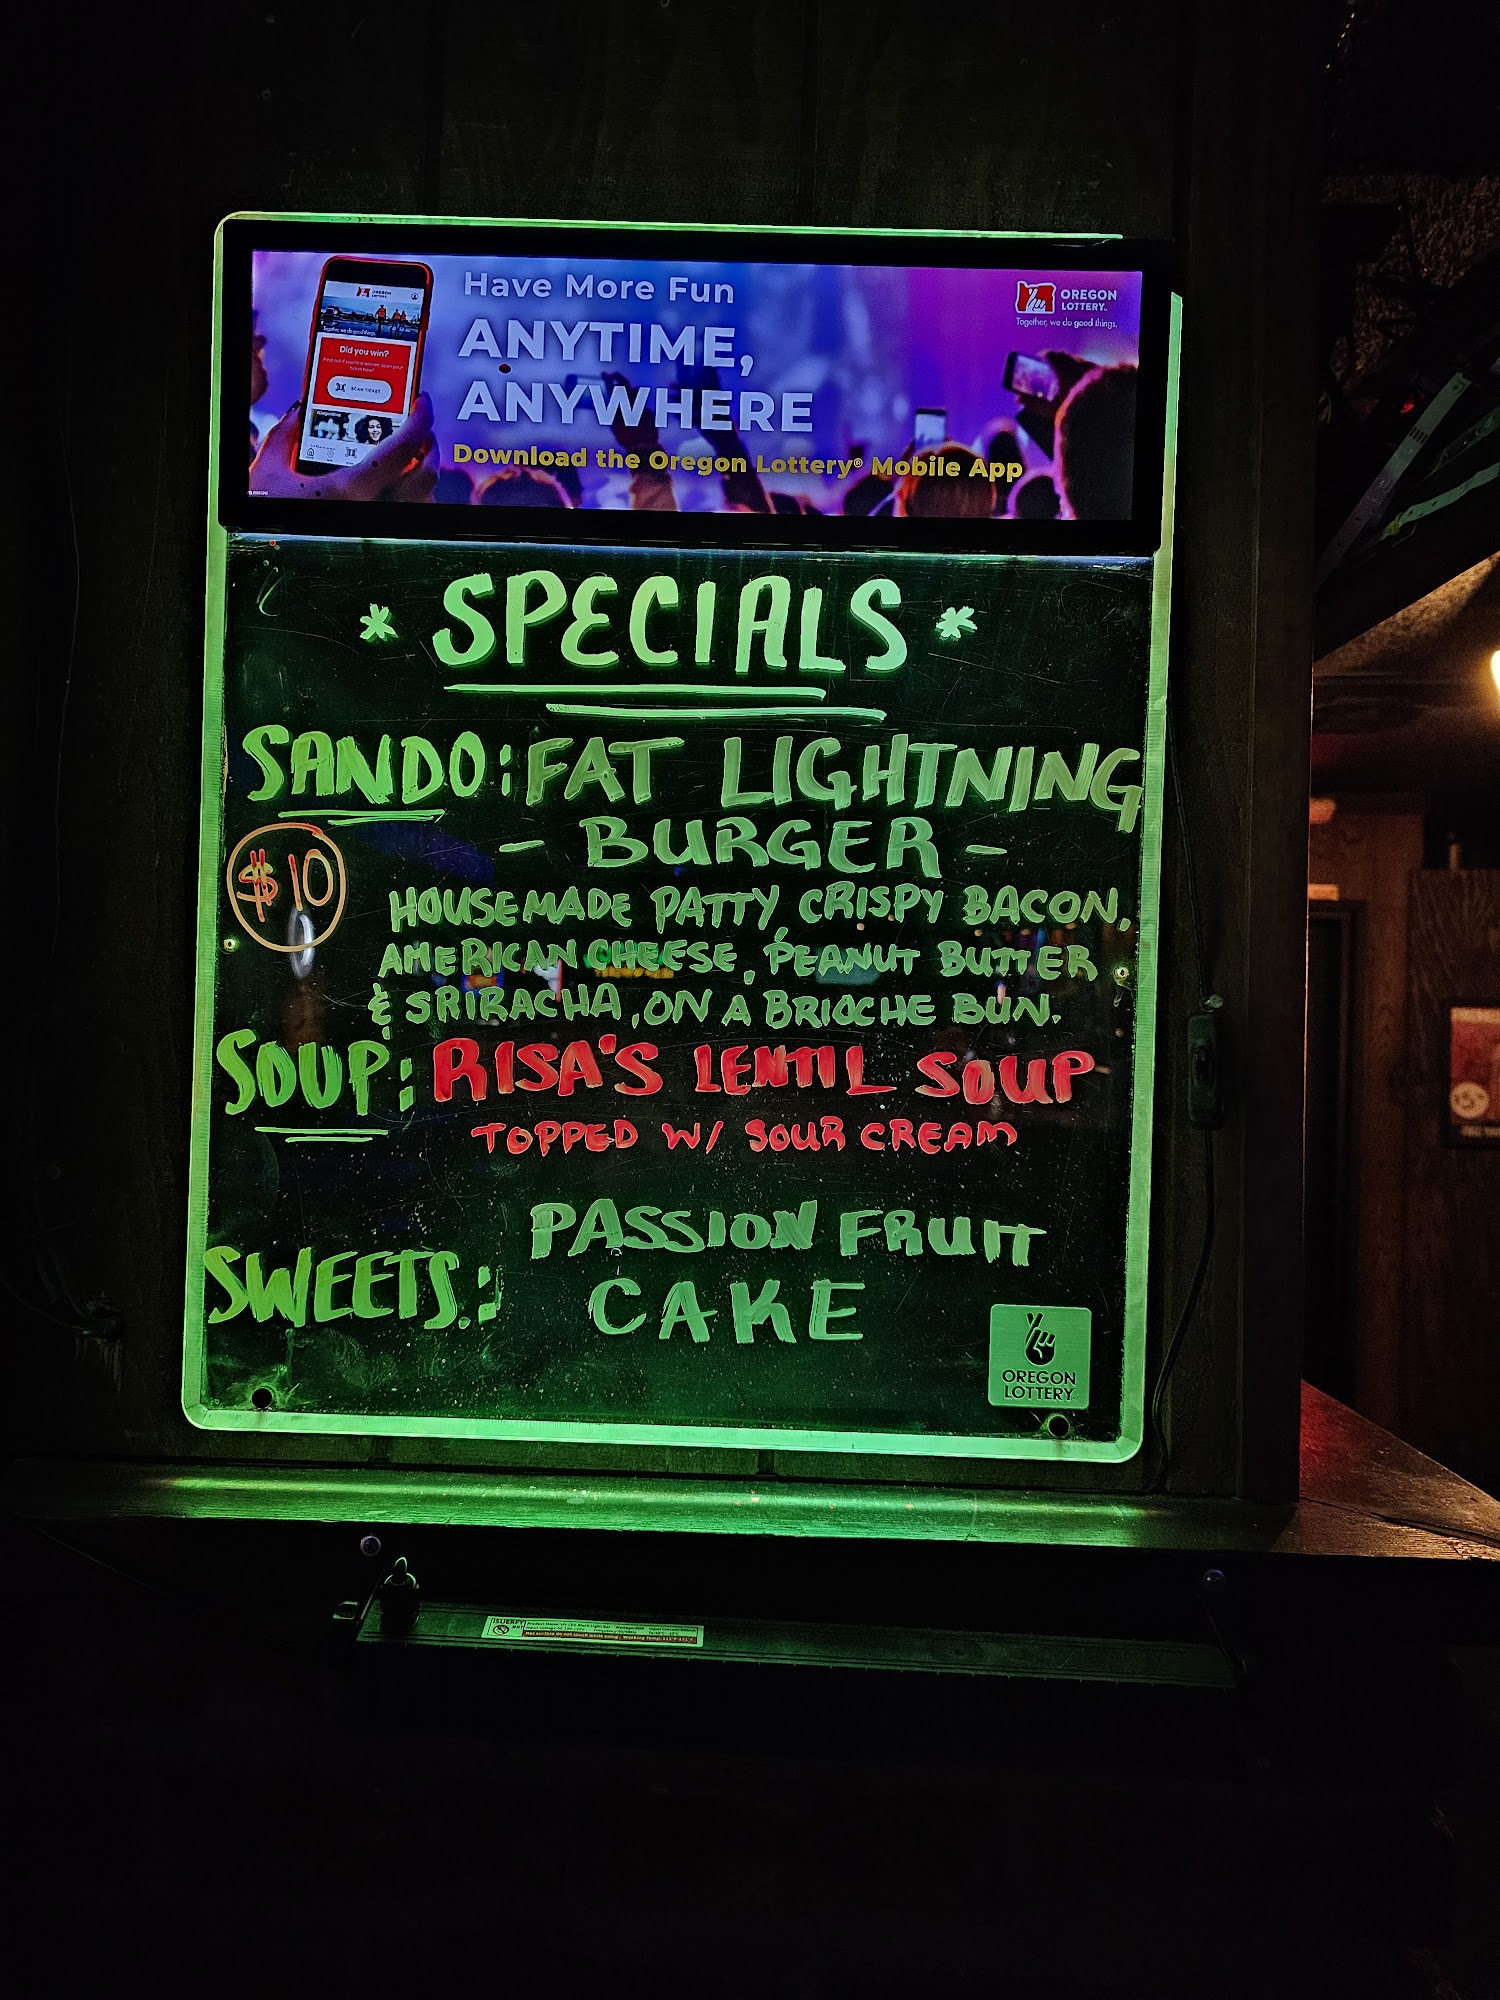 Have More Fun
ANYTIME,
ANYWHERE
Download the Oregon Lottery® Mobile App
OREGON
LOTTERY
Together, we do good things.
OREGON
LOTTERY
Together, we do good things.
Did you win?
SCAN TICKET
* SPECIALS *
SANDO: FAT LIGHTNING
- BURGER -
$10
HOUSEMADE PATTY, CRISPY BACON,
AMERICAN CHEESE, PEANUT BUTTER
& SRIRACHA, ON A BRIOCHE BUN.
SOUP: RISA'S LENTIL SOUP
TOPPED W/ SOUR CREAM
SWEETS: PASSION FRUIT
CAKE
OREGON
LOTTERY